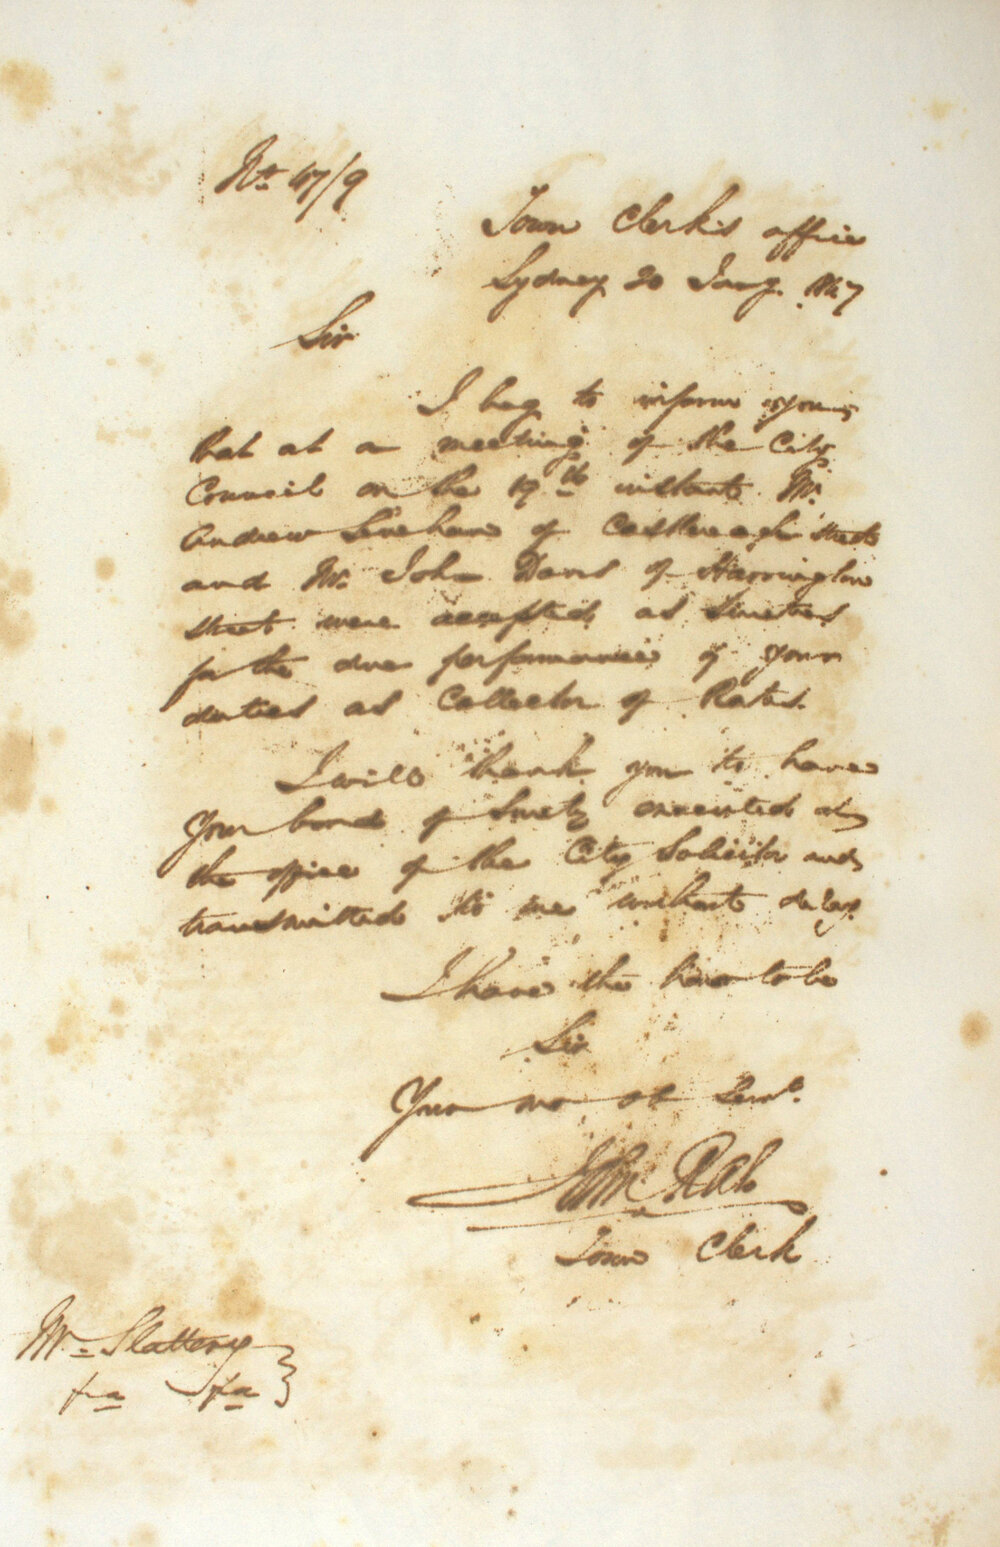 No 47/9
Town Clerk's office
Sydney 20 Jany. 1847
Sir
I beg to inform you
that at a meeting of the City
Council on the 19th instant Mr.
Andrew Lenehan of Castlereagh Street
and Mr. John Davis of Harrington
street were accepted as Sureties
for the due performance of your
duties as Collector of Rates.
I will thank you to have
your bond of Surety executed at
the office of the City Solicitor and
transmitted to me without delay.
I have the honor to be
Sir
Your mo ob Servt.
John Rae
Town Clerk
Mr. Slattery